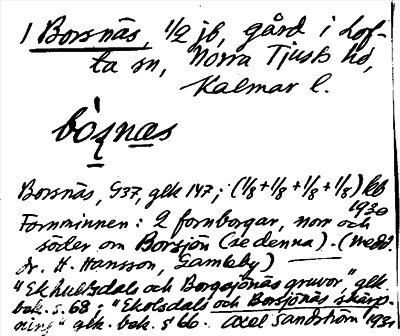 1 Borsnäs, 1/2 jb, gård i Lof-
ta sn, Norra Tjusts hd,
Kalmar l.
Borsnäs, G37, glk 147; (1/8+1/8+1/8+1/8) kb
1930
Fornminnen: 2 fornborgar, norr och
söder om Borsjön (se denna). (medd.
dr. H. Hansson, Gamleby)
"Ekhultsdals och Borgsjönäs gruvor," glk.
bok. s. 68; "Ekolsdals och Borsjönäs skärp-
ning" glk. bok. s 66. Axel Sandström 1931